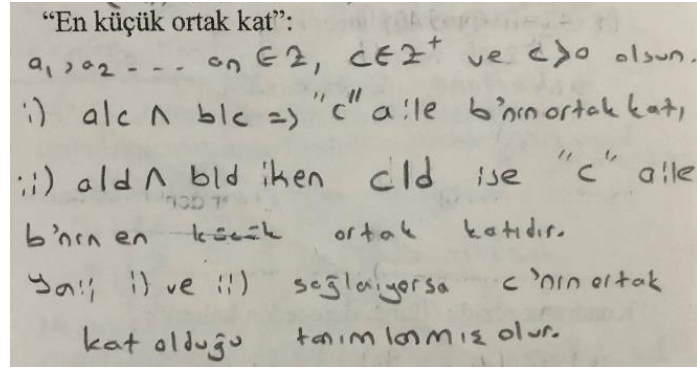 “En küçük ortak kat”:
a₁, a₂ - - - an ∈ Z, c ∈ Z⁺ ve c>0 olsun.
i) a|c ∧ b|c => "c" a ile b'nın ortak katı,
ii) a|d ∧ b|d iken c|d ise "c" a ile
b'nın en küçük ortak katıdır.
Yani i) ve ii) sağlaiyorsa c'nın ortak
kat olduğu tanımlanmış olur.